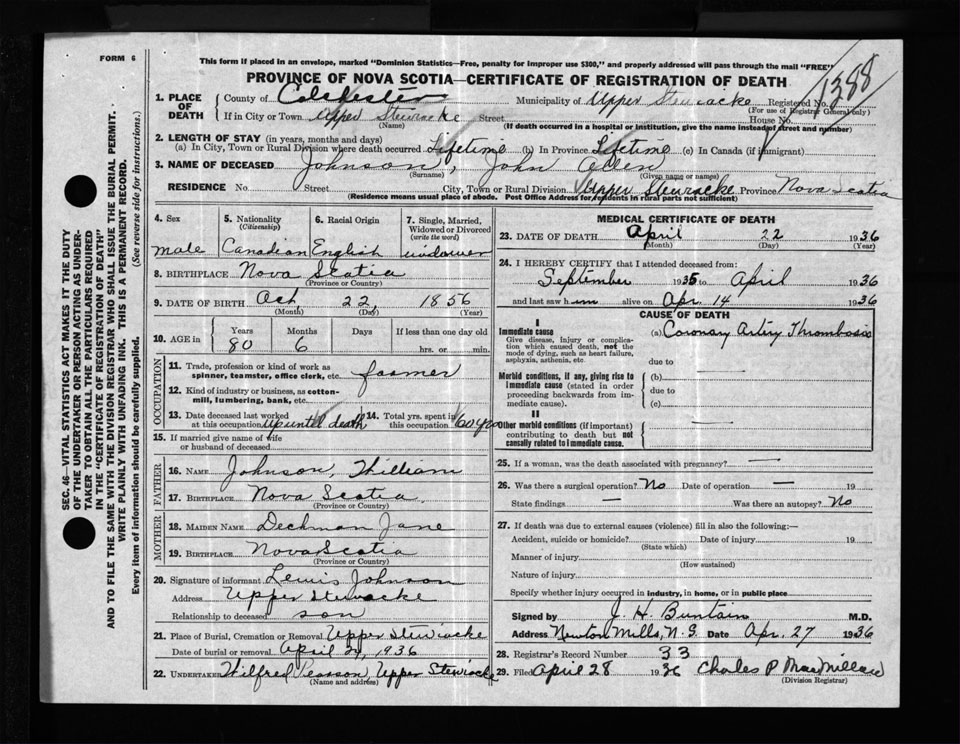 FORM 6
This form if placed in an envelope, marked "Dominion Statistics—Free, penalty for improper use $300," and properly addressed will pass through the mail "FREE"
PROVINCE OF NOVA SCOTIA—CERTIFICATE OF REGISTRATION OF DEATH
1388
1. PLACE OF DEATH
County of Colchester Municipality of Upper Stewiacke Registered No.
(For use of Registrar General only)
If in City or Town Upper Stewiacke Street House No.
(Name) (If death occurred in a hospital or institution, give the name instead of street and number)
2. LENGTH OF STAY (in years, months and days)
(a) In City, Town or Rural Division where death occurred Lifetime (b) In Province Lifetime (c) In Canada (if immigrant)
3. NAME OF DECEASED Johnson, John Allen
(Surname) (Given name or names)
RESIDENCE No. Street City, Town or Rural Division Upper Stewiacke Province Nova Scotia
(Residence means usual place of abode. Post Office Address for residents in rural parts not sufficient)
SEC. 46—VITAL STATISTICS ACT MAKES IT THE DUTY
OF THE UNDERTAKER OR PERSON ACTING AS UNDER-
TAKER TO OBTAIN ALL THE PARTICULARS REQUIRED
IN THE "CERTIFICATE OF REGISTRATION OF DEATH"
AND TO FILE THE SAME WITH THE DIVISION REGISTRAR WHO SHALL ISSUE THE BURIAL PERMIT.
WRITE PLAINLY WITH UNFADING INK. THIS IS A PERMANENT RECORD.
Every item of information should be carefully supplied. (See reverse side for instructions.)
4. Sex
male
5. Nationality
(Citizenship)
Canadian
6. Racial Origin
English
7. Single, Married,
Widowed or Divorced
(write the word)
widower
8. BIRTHPLACE Nova Scotia
(Province or Country)
9. DATE OF BIRTH Oct 22, 1856
(Month) (Day) (Year)
10. AGE in
Years Months Days If less than one day old
80 6 hrs. or min.
OCCUPATION
11. Trade, profession or kind of work as
spinner, teamster, office clerk, etc. farmer
12. Kind of industry or business, as cotton-
mill, lumbering, bank, etc.
13. Date deceased last worked 14. Total yrs. spent in
at this occupation Up until death this occupation 60 yrs
15. If married give name of wife
or husband of deceased
FATHER
16. NAME Johnson, William
17. BIRTHPLACE Nova Scotia
(Province or Country)
MOTHER
18. MAIDEN NAME Deckman Jane
19. BIRTHPLACE Nova Scotia
(Province or Country)
20. Signature of informant Lewis Johnson
Address Upper Stewiacke
Relationship to deceased son
21. Place of Burial, Cremation or Removal Upper Stewiacke
Date of burial or removal April 1936
22. UNDERTAKER Wilfred Pearson, Upper Stewiacke
(Name and address)
MEDICAL CERTIFICATE OF DEATH
23. DATE OF DEATH April 22 1936
(Month) (Day)
24. I HEREBY CERTIFY that I attended deceased from:
September 1935 to April 1936
and last saw him alive on Apr. 14 1936
CAUSE OF DEATH
I
Immediate cause (a) Coronary Artery Thrombosis
Give disease, injury or complica-
tion which caused death, not the
mode of dying, such as heart failure,
asphyxia, asthenia, etc.
due to
Morbid conditions, if any, giving rise to
immediate cause (stated in order
proceeding backwards from im-
mediate cause).
(b) —
due to
(c)
II
Other morbid conditions (if important)
contributing to death but not
causally related to immediate cause.
—
25. If a woman, was the death associated with pregnancy? —
26. Was there a surgical operation? No Date of operation — 19
State findings — Was there an autopsy? No
27. If death was due to external causes (violence) fill in also the following:—
Accident, suicide or homicide? Date of injury 19
(State which)
Manner of injury
(How sustained)
Nature of injury
Specify whether injury occurred in industry, in home, or in public place
Signed by J. H. Buntain M.D.
Address Newton Mills, N.S. Date Apr. 27 1936
28. Registrar's Record Number 33
29. Filed April 28 1936 Charles P MacMillan
(Division Registrar)